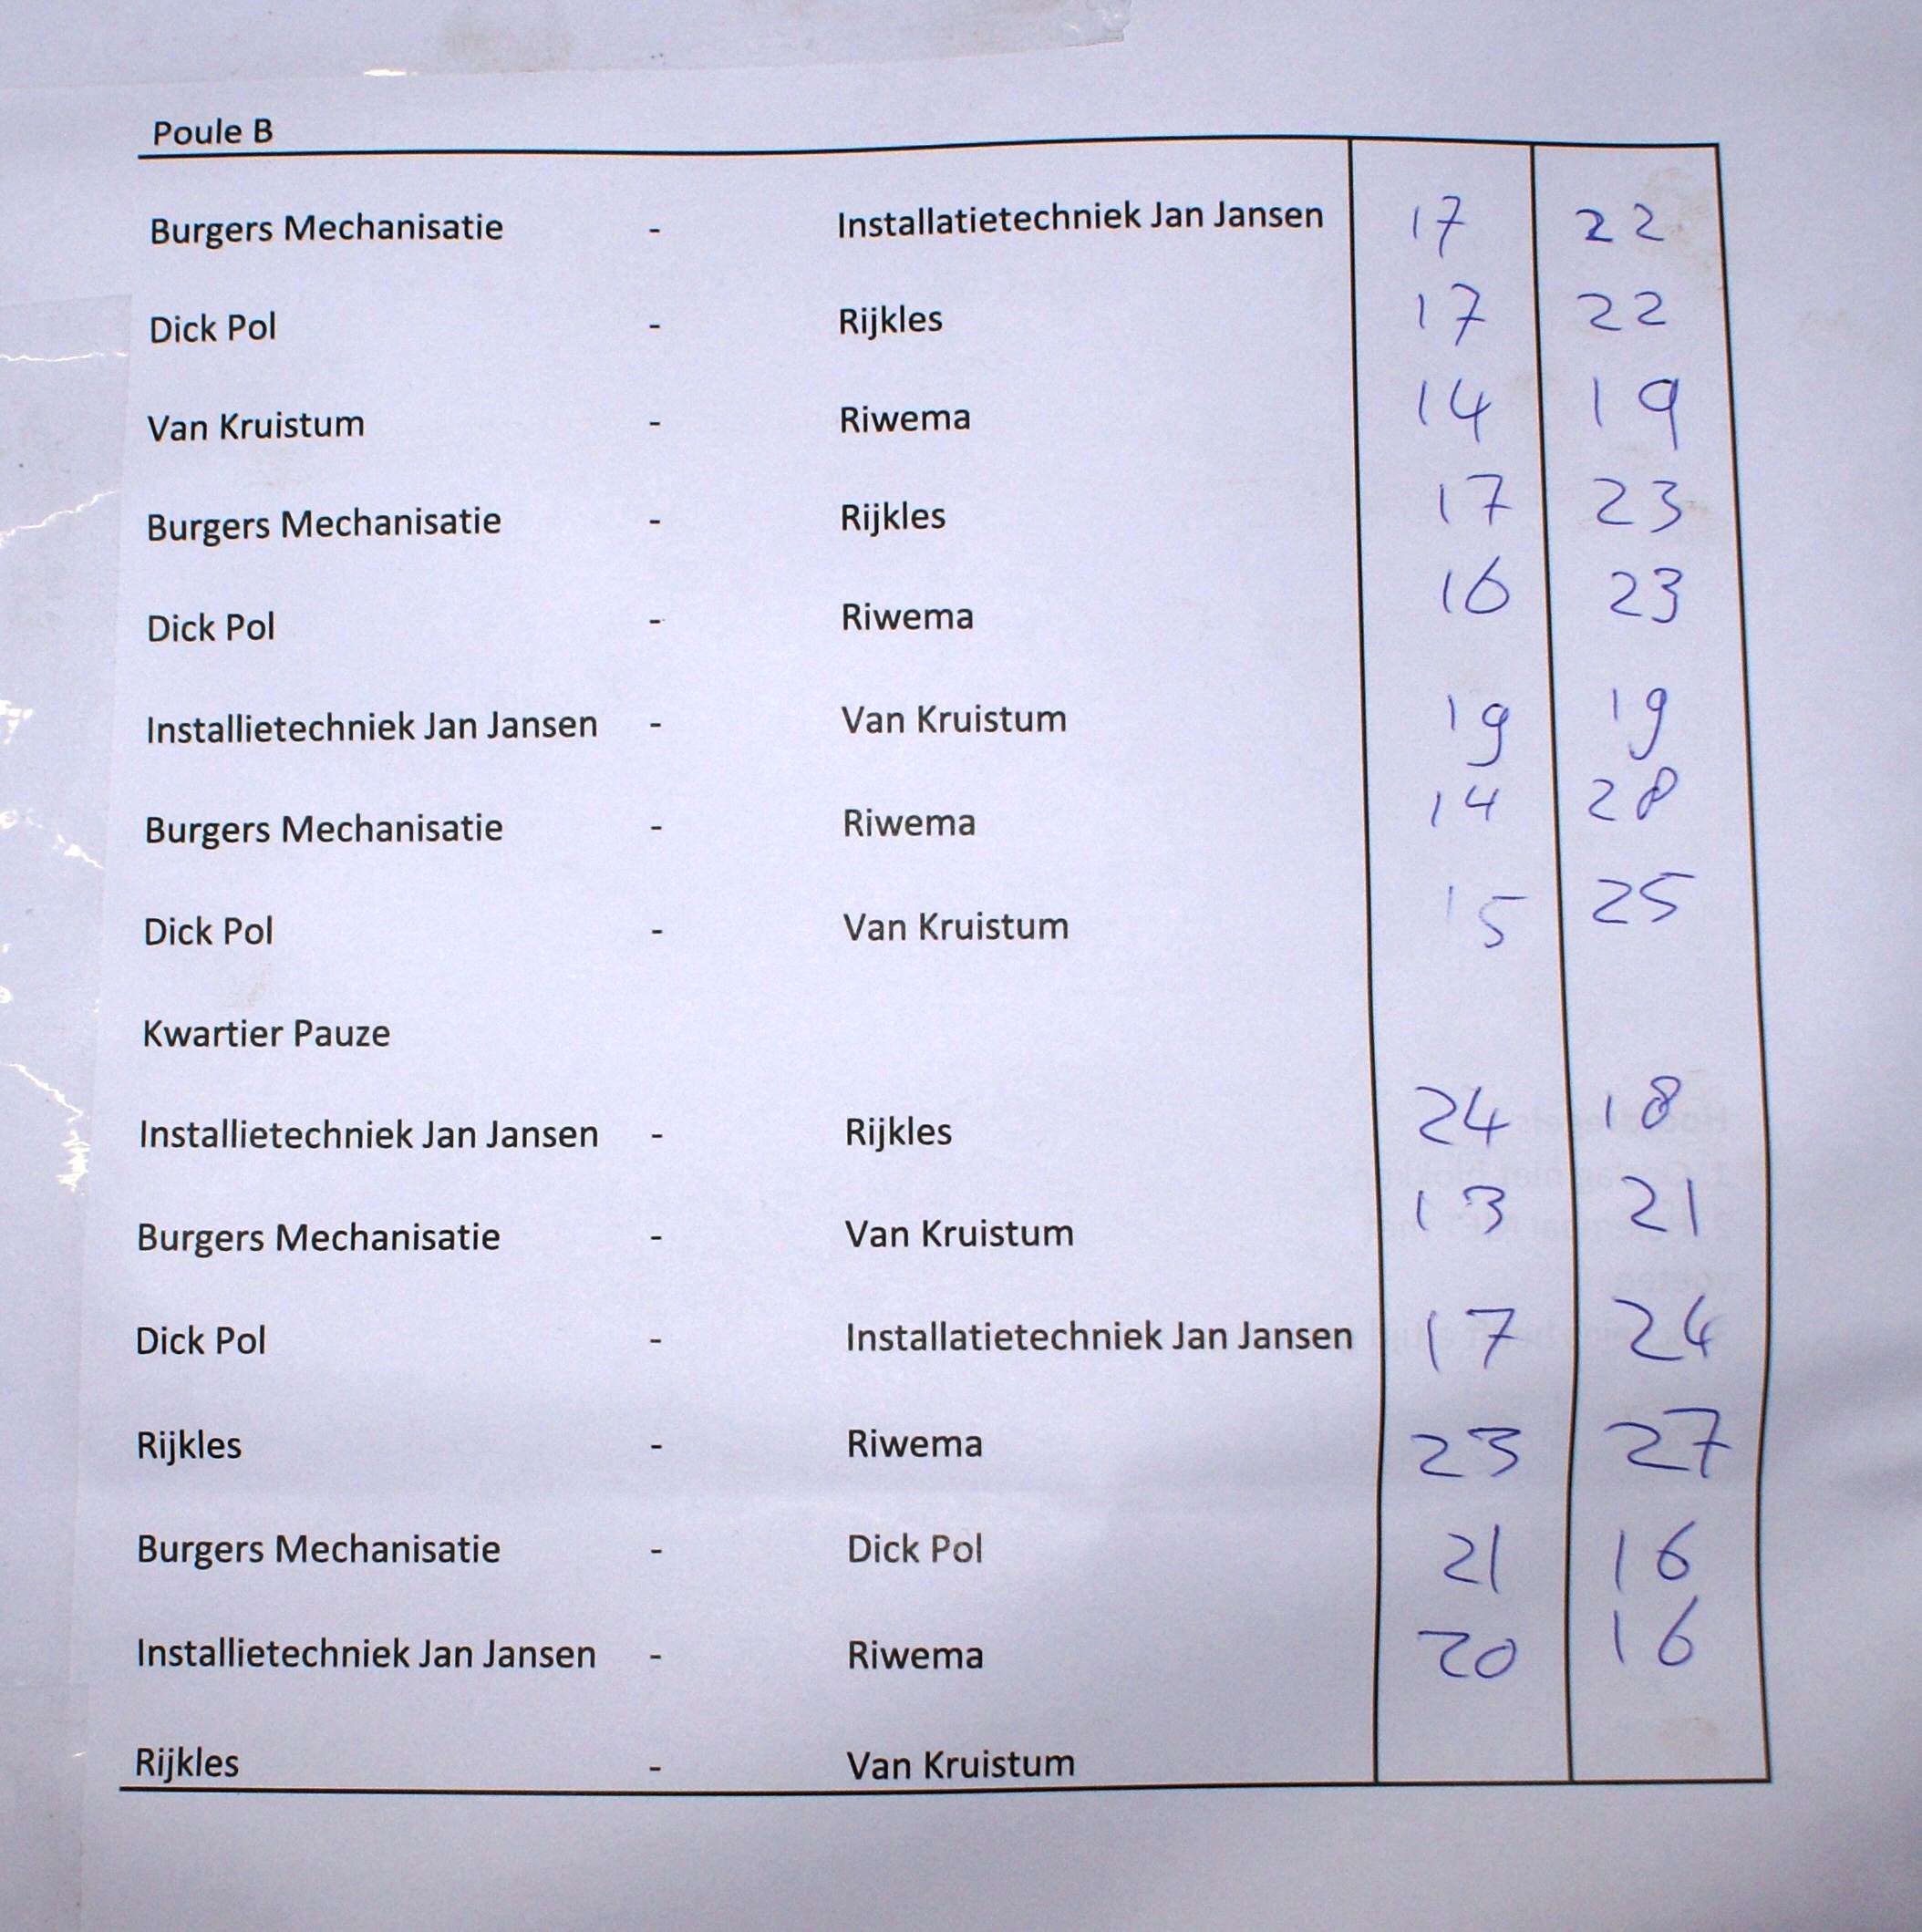 Poule B
Burgers Mechanisatie - Installatietechniek Jan Jansen 17 22
Dick Pol - Rijkles 17 22
Van Kruistum - Riwema 14 19
Burgers Mechanisatie - Rijkles 17 23
Dick Pol - Riwema 16 23
Installietechniek Jan Jansen - Van Kruistum 19 19
Burgers Mechanisatie - Riwema 14 28
Dick Pol - Van Kruistum 15 25
Kwartier Pauze
Installietechniek Jan Jansen - Rijkles 24 18
Burgers Mechanisatie - Van Kruistum 13 21
Dick Pol - Installatietechniek Jan Jansen 17 24
Rijkles - Riwema 23 27
Burgers Mechanisatie - Dick Pol 21 16
Installietechniek Jan Jansen - Riwema 20 16
Rijkles - Van Kruistum